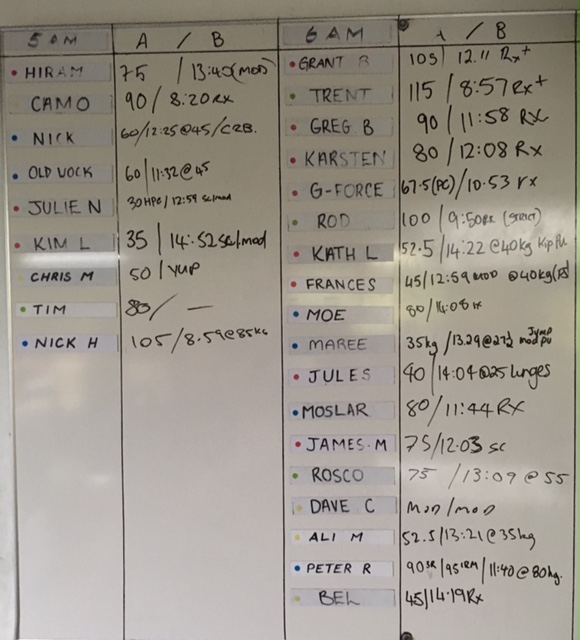 5 AM A / B
HIRAM 75 / 13:45 (MOD)
CAMO 90 / 8:20 RX
NICK 60/12:25@45/C2B.
OLD 60/11:32@45
JULIE N 30 HPC / 12:59 sc/mod
KIM L 35 / 14:52 Sc/mod
CHRIS M 50 / YUP
TIM 80/ —
NICK H 105/8.59@85kg
6 AM A / B
GRANT B 105/ 12.11 Rx+
TRENT 115 / 8:57 Rx+
GREG B 90 / 11:58 RX
KARSTEN 80 / 12:08 Rx
G-FORCE 67.5(PC)/10.53 rx
ROD 100 / 9:50RX (STRICT)
KATH L 52.5/14:22 @40kg Kip Pu
FRANCES 45/12:59 MOD @40kg
MOE 80/14:08 rx
MAREE 35kg /13.29@27½ Jump mod pu
JULES 40/14:04@25 lunges
MOSLAR 80/11:44 RX
JAMES.M 75/12:03 sc
ROSCO 75 /13:09 @ 55
DAVE C MOD/MOD
ALI M 52.5/13:21@35kg
PETER R 90SR/95 1RM/11:40@80kg.
BEL 45/14:19 Rx